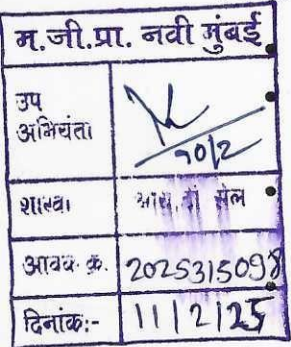 म.जी.प्रा. नवी मुंबई
उप
अभियंता
१०/2
शाखा
आय. टी सेल
आवक. क्र. 2025315098
दिनांक:- 11/2/25